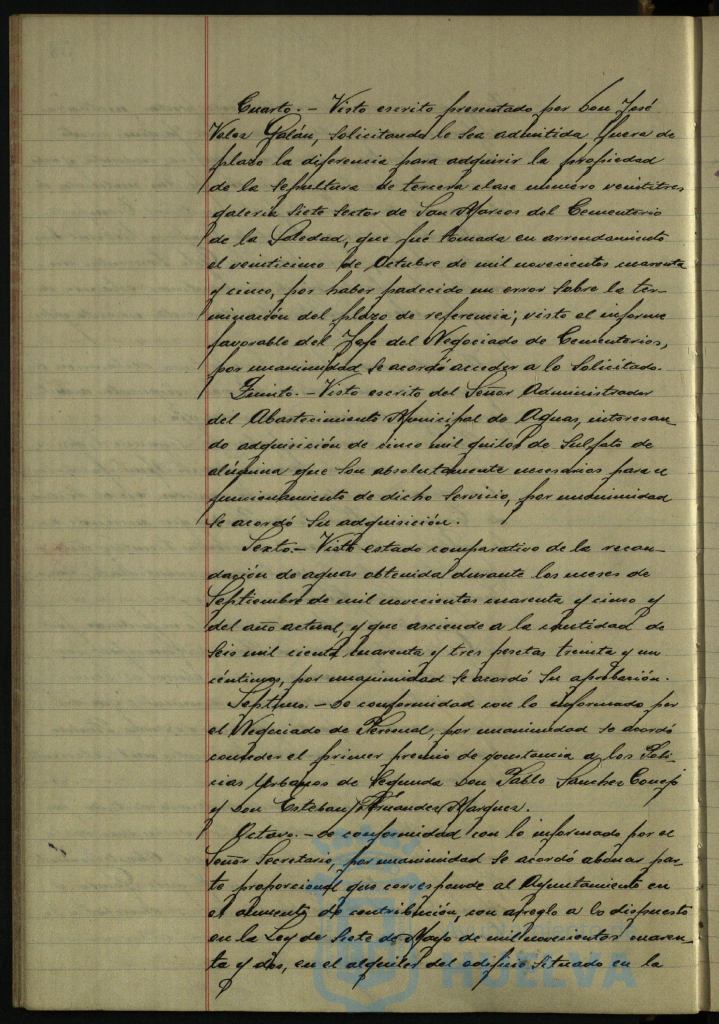 Cuarto.- Visto escrito presentado por Don José
Velez Galán, solicitando le sea admitida fuera de
plazo la diferencia para adquirir la propiedad
de la Sepultura de tercera clase número veintitres
galeria siete Sector de San Marcos del Cementerio
de la Soledad, que fué tomada en arrendamiento
el veinticinco de Octubre de mil novecientos cuarenta
y cinco, por haber padecido un error sobre la ter-
minación del plazo de referencia; visto el informe
favorable del Jefe del Negociado de Cementerios,
por unanimidad se acordó acceder a lo solicitado.
Quinto.- Visto escrito del Señor Administrador
del Abastecimiento Municipal de Aguas, interesan-
do adquisición de cinco mil quilos de Sulfato de
alúmina que son absolutamente necesarios para el
funcionamiento de dicho Servicio, por unanimidad
se acordó su adquisición.
Sexto.- Visto estado comparativo de la recau-
dación de aguas obtenida durante los meses de
Septiembre de mil novecientos cuarenta y cinco y
del año actual, y que asciende a la cantidad de
seis mil ciento cuarenta y tres pesetas treinta y un
céntimos, por unanimidad se acordó su aprobación.
Septimo.- De conformidad con lo informado por
el Negociado de Personal, por unanimidad se acordó
conceder el primer premio de constancia a los Poli-
cias Urbanos de Segunda Don Pablo Sanchez Conejo
y Don Esteban Fernandez Marquez.
Octavo.- De conformidad con lo informado por el
Señor Secretario, por unanimidad se acordó abonar par-
te proporcional que corresponde al Ayuntamiento en
el aumento de contribución, con arreglo a lo dispuesto
en la Ley de Siete de Mayo de mil novecientos cuaren-
ta y dos, en el alquiler del edificio situado en la
HUELVA